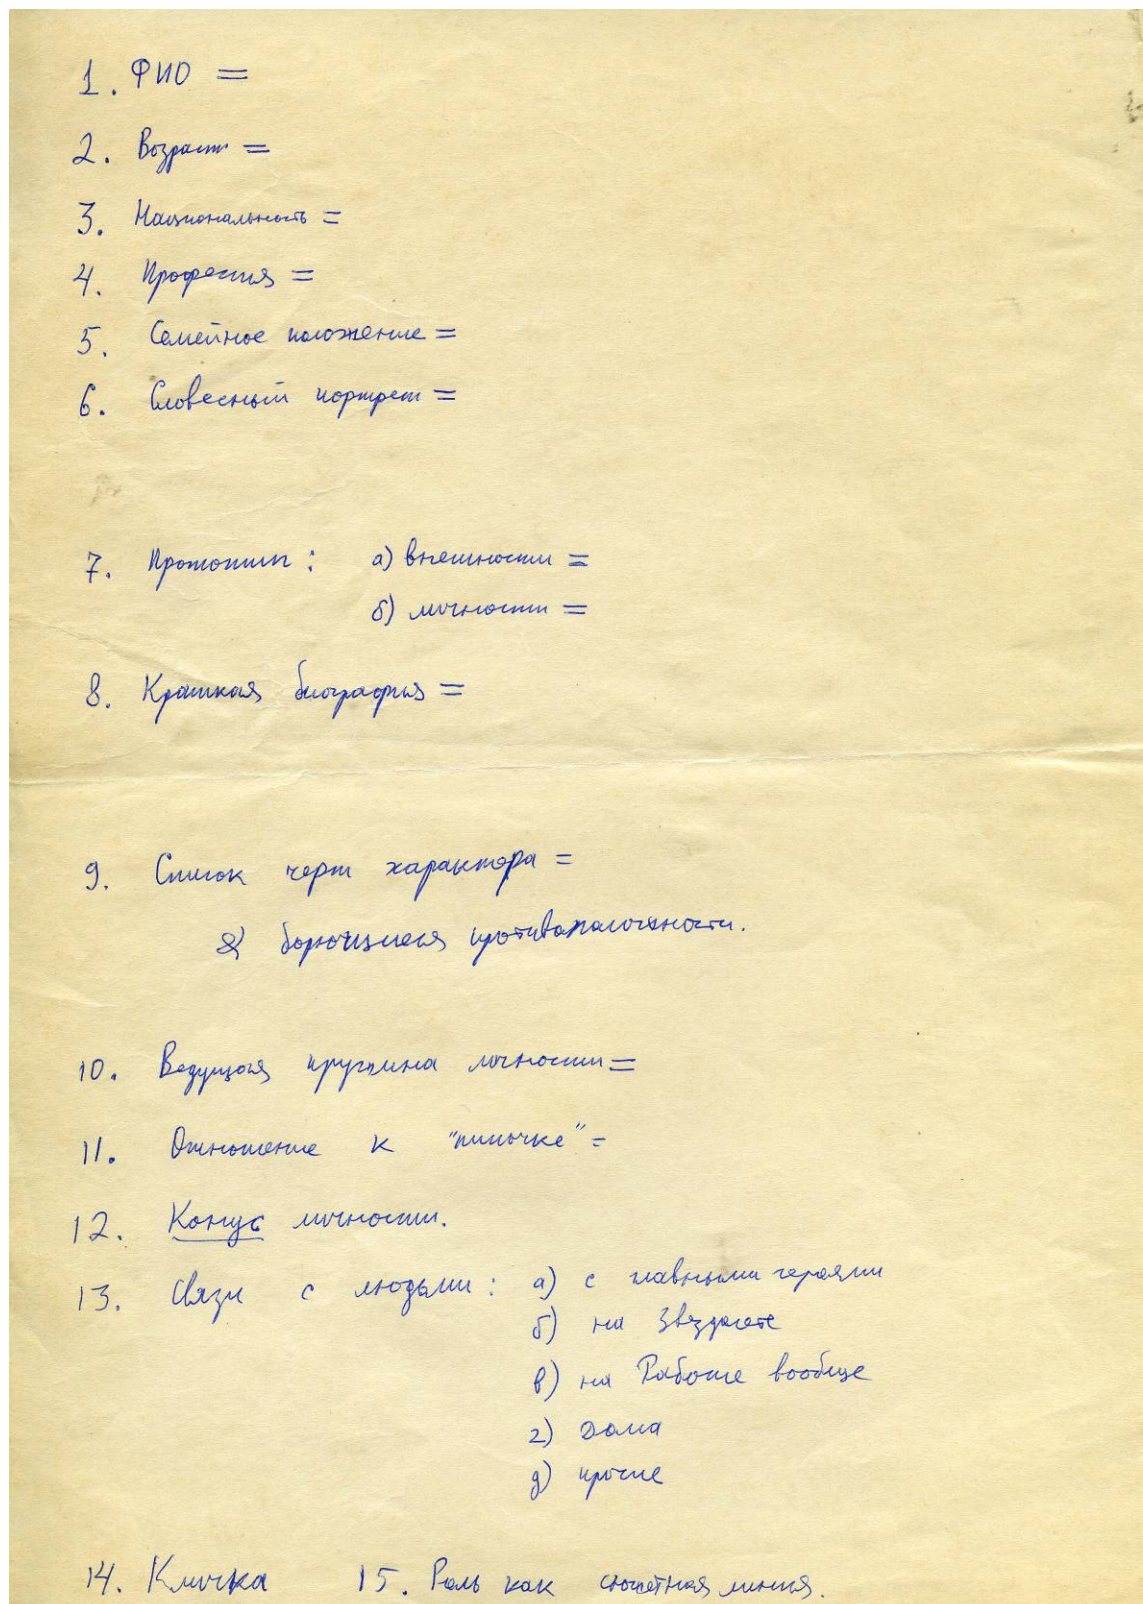 1. ФИО =
2. Возраст =
3. Национальность =
4. Профессия =
5. Семейное положение =
6. Словесный портрет =
7. Прототип: а) внешности =
б) личности =
8. Краткая биография =
9. Список черт характера =
&) борющиеся противоположности.
10. Ведущая пружина личности =
11. Отношение к "типочке" =
12. Конус личности.
13. Связи с людьми: а) с главными героями
б) на Звездолете
в) на Работе вообще
г) дома
д) прочие
14. Кличка 15. Роль как сюжетная линия.